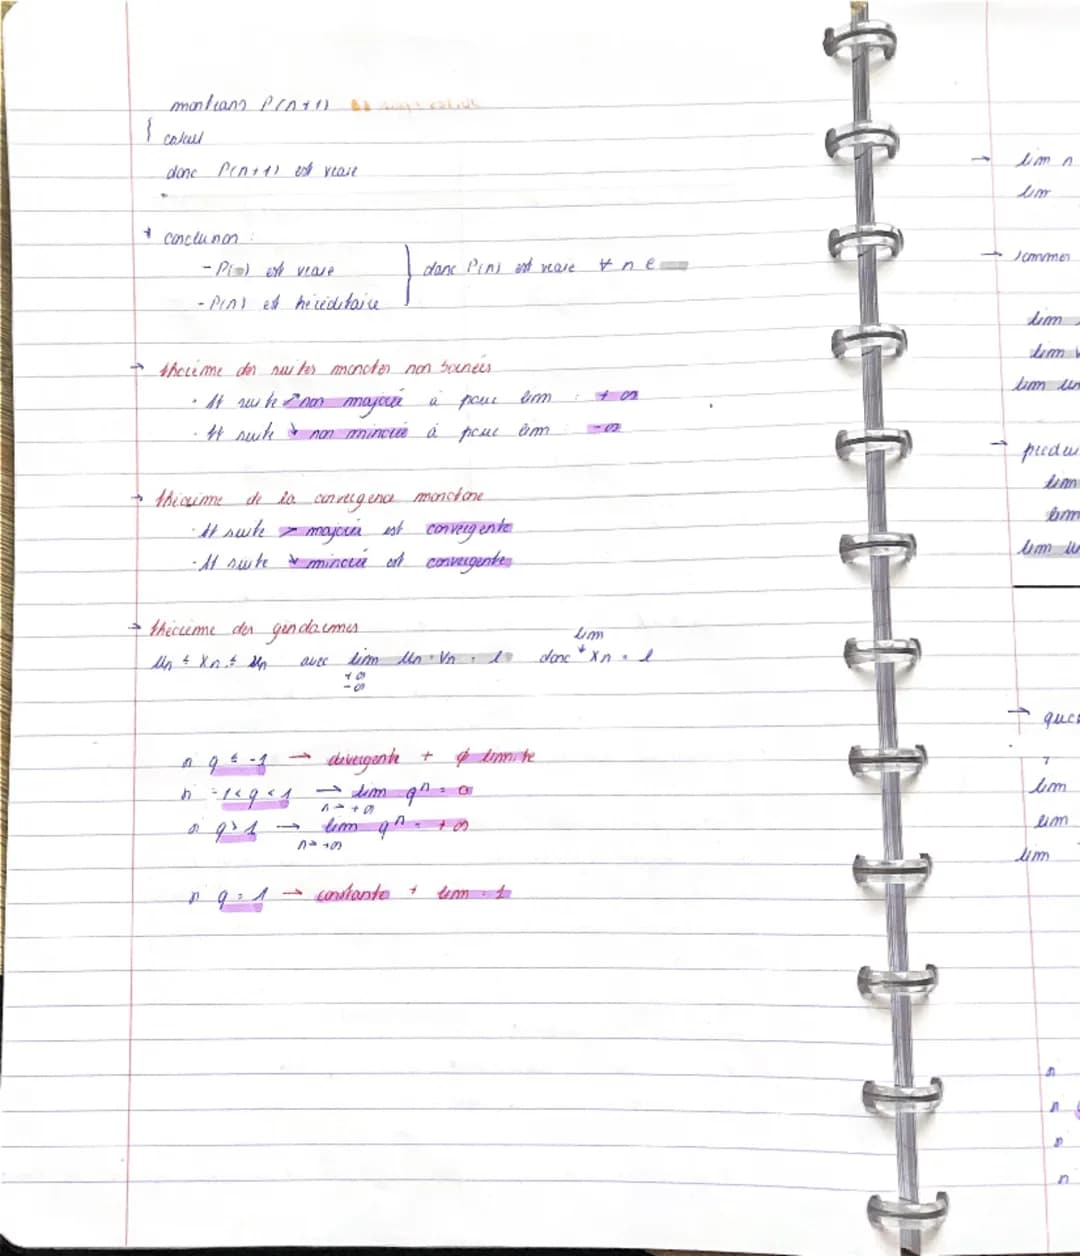 montrons P(n+1)
{ calcul
donc P(n+1) est vraie
* conclusion :
- P( ) est vraie
- P(n) est héréditaire } donc P(n) est vraie ∀ n ∈
→ théorème des suites monotones non bornées
• tt suite ↗ non majorée à pour lim : + ∞
• tt suite ↘ non minorée à pour lim : - ∞
→ théorème de la convergence monotone
• tt suite ↗ majorée est convergente
• tt suite ↘ minorée est convergente
→ théorème des gendarmes
Un ≤ Xn ≤ Vn avec lim Un = Vn = l donc lim Xn = l
+∞
-∞
si q ≤ -1 → divergente + ∅ limite
si -1 < q < 1 → lim q^n = 0
n→+∞
si q > 1 → lim q^n = +∞
n→+∞
si q = 1 → constante + lim = 1
→ lim n
lim
→ sommes
lim
lim
lim un
→ produi
lim
lim
lim un
→ quo
lim
lim
lim